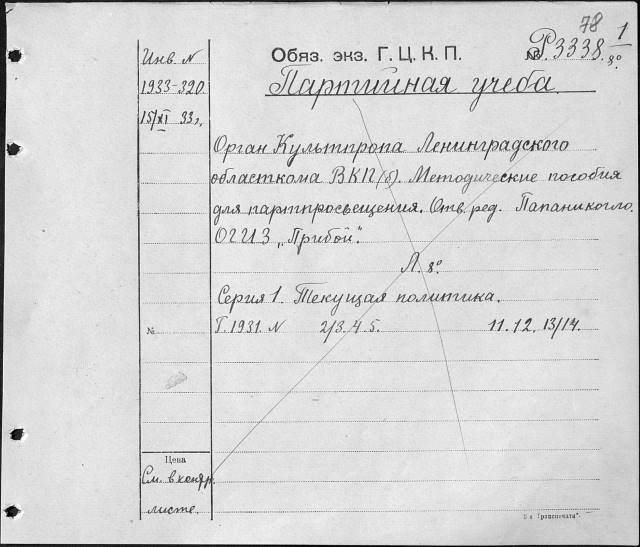 78
Обяз. экз. Г. Ц. К. П.
№ Р3338 1/8°
Партийная учеба.
Инв. N
1933-320
15/XI 33 г.
Орган Культпропа Ленинградского
областкома ВКП(б). Методические пособия
для партпросвещения. Отв. ред. Папаникогло.
ОГИЗ „Прибой".
Л. 8°
Серия 1. Текущая политика.
№ Г. 1931. N 2/3. 4. 5. 11. 12. 13/14.
Цена
См. в контр.
листе.